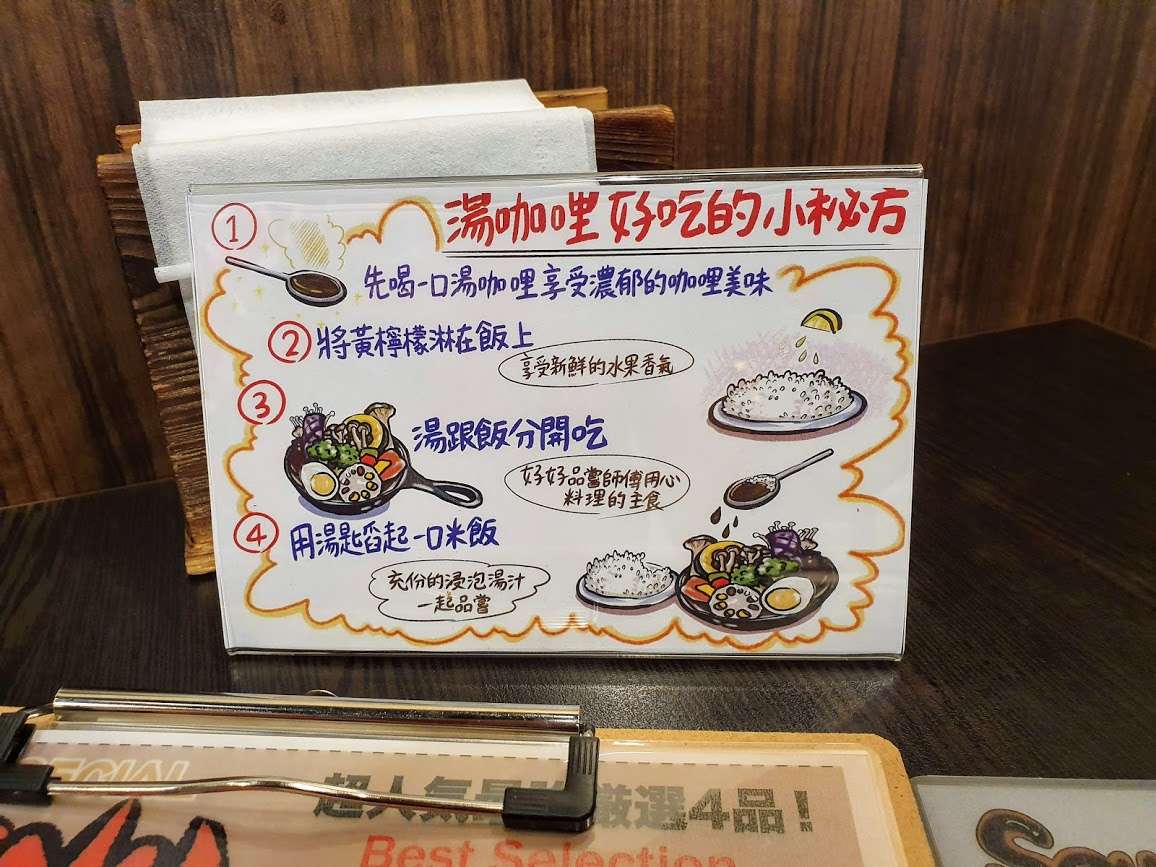 湯咖哩好吃的小秘方
① 先喝一口湯咖哩享受濃郁的咖哩美味
② 將黃檸檬淋在飯上
享受新鮮的水果香氣
③ 湯跟飯分開吃
好好品嘗師傅用心
料理的主食
④ 用湯匙舀起一口米飯
充份的浸泡湯汁
一起品嘗
SPECIAL
超人気 厳選4品!
Best Selection